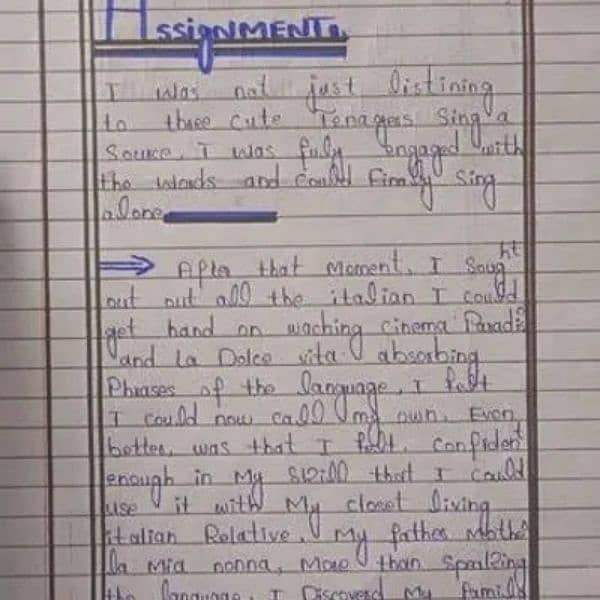 Assignment
I was not just listining
to three cute Tenagers Sing a
Source, I was fuly engaged with
the words and could Finally Sing
alone
After that Moment, I Sought
out out all the italian I could
get hand on waching Cinema Paradi
and La Dolce vita absorbing
Phrases of the language, I felt
I could now call my own. Even
better, was that I felt confident
enough in My Skill that I could
use it with My closet living
italian Relative, My father Mothe
la Mia nonna, More than Speaking
the language, I Discovered My family